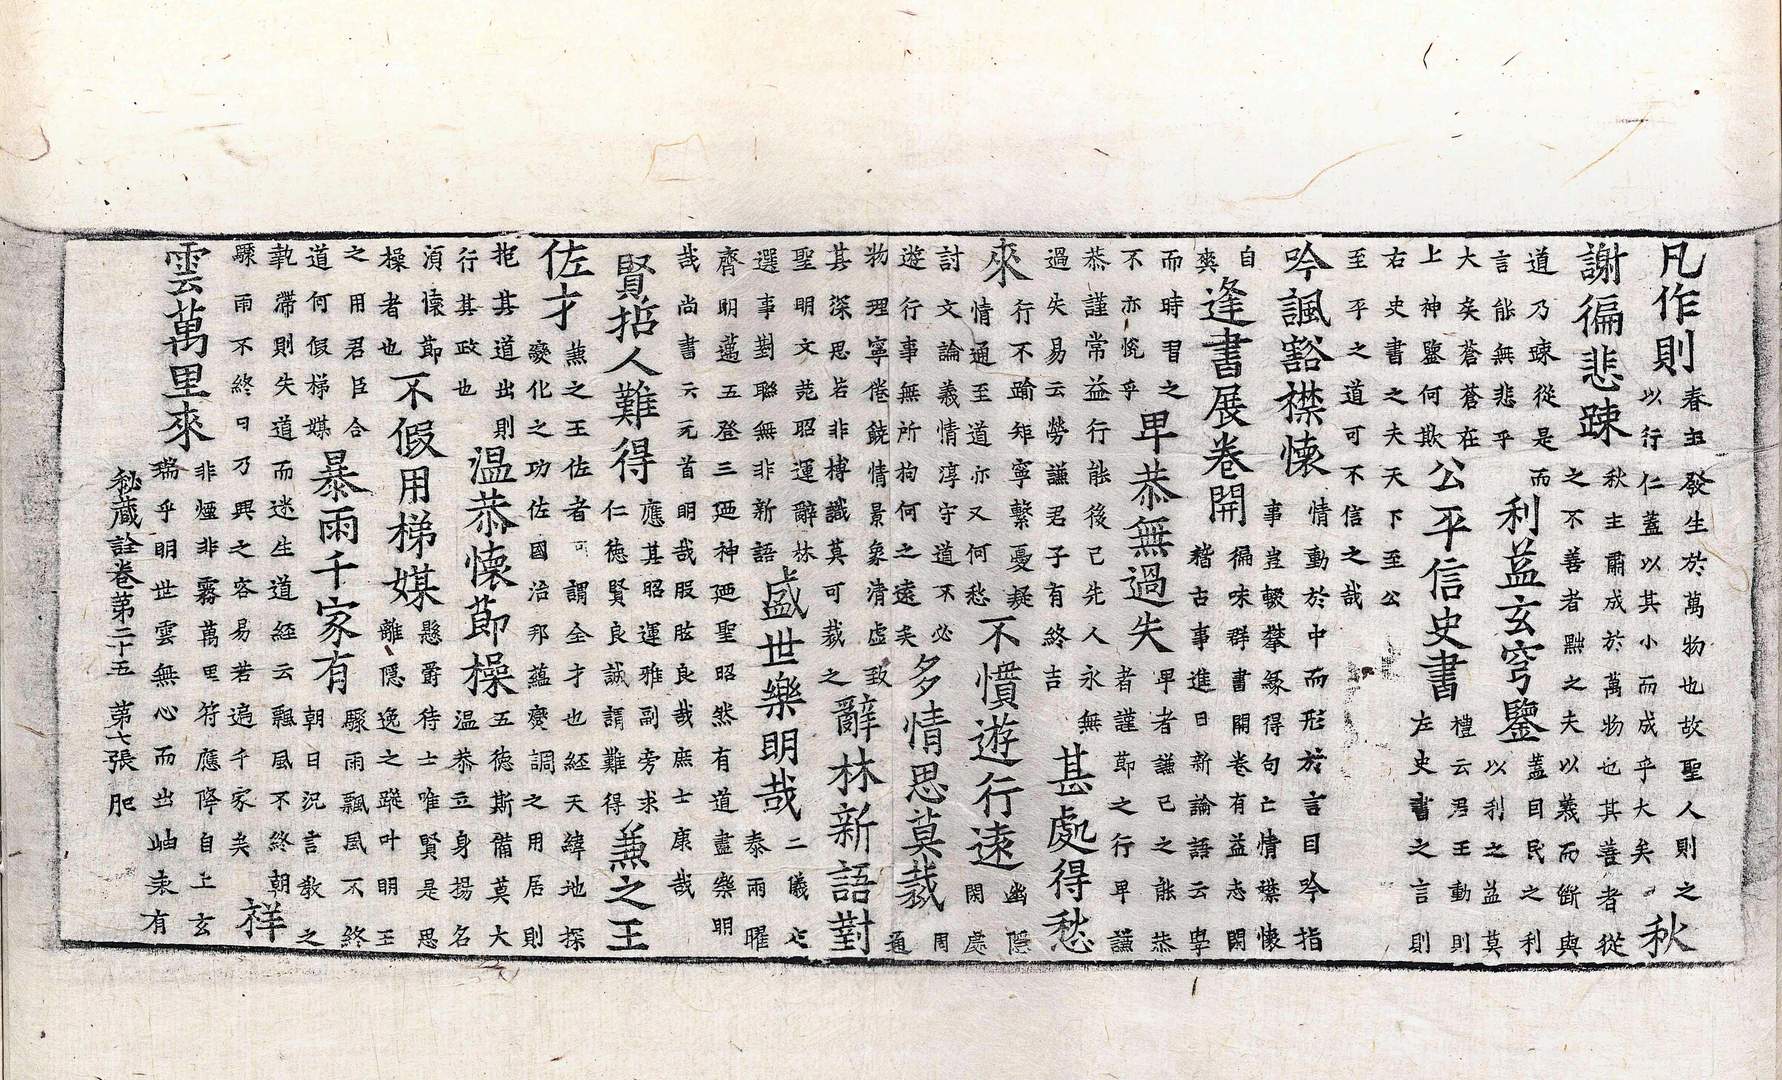 凡作則
春主發生於萬物也故聖人則之
以行仁蓋以其小而成乎大矣
秋
謝徧悲踈
秋主肅成於萬物也其善者從
之不善者黜之夫以義而斷與
道乃踈從是而
言能無悲乎
利益玄穹鑒
蓋目民之利
以利之益莫
大矣蒼蒼在
上神鑒何欺
公平信史書
禮云君王動則
左史書之言則
右史書之夫天下至公
至乎之道可不信之哉
吟諷豁襟懷
情動於中而形於言目吟指
事豈輟攀緣得句亡情襟懷
自
爽
逢書展卷開
徧味群書開卷有益志開
稽古事進日新論語云學
而時習之
不亦悅乎
卑恭無過失
卑者謙己之能恭
者謹節之行卑謙
恭謹常益行能後己先人永無
過失易云勞謙君子有終吉
甚處得愁
來
行不踰矩寧繫憂凝
情通至道亦又何愁
不憤遊行遠
幽隱
閑處
討文論義情淳守道不必
遊行事無所拘何之遠矣
多情思莫裁
周
通
物理寧倦饒情景象清虛致
其深思若非博識莫可裁之
辭林新語對
聖明文苑昭運辭林
選事對聯無非新語
盛世樂明哉
二儀交
泰兩曜
齊明邁五登三廼神廼聖昭然有道盡樂明
哉尚書云元首明哉股肱良哉庶士康哉
賢人難得
應其昭運雅副旁求
仁德賢良誠謂難得
兼之王
佐才
兼之王佐者可謂全才也經天緯地探
變化之功佐國治邦蘊燮調之用居則
抱其道出則
行其政也
溫恭懷節操
五德斯備莫大
溫恭立身揚名
湏懷節
操者也
不假用梯媒
懸爵待士唯賢是思
離隱逸之蹤叶明王
之用君臣合
道何假梯媒
暴雨千家有
驟雨飄風不終
朝日況言教之
執滯則失道而迷生道經云飄風不終朝
驟雨不終日乃興之容易若遍千家矣
祥
雲萬里來
非煙非霧萬里符應降自上玄
瑞乎明世雲無心而出岫表有
秘藏詮卷第二十五 第七張 肥